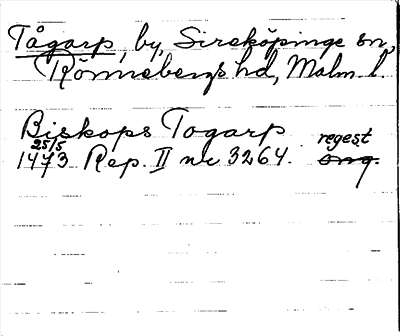 Tågarp, by, Sireköpinge sn,
Rönnebergs hd, Malm. l.
Biskops Togarp
25/5
1473 Rep. II nr 3264. regest
orig.